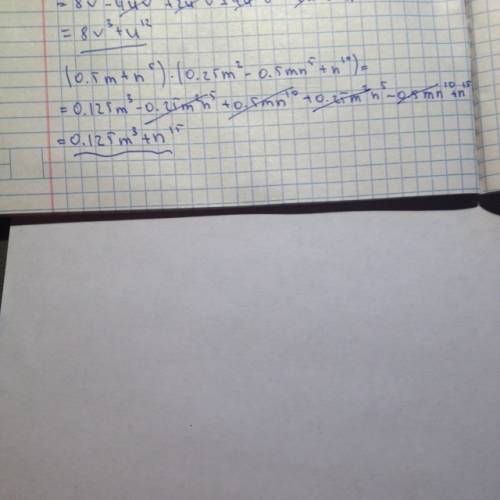 = 8v³ + u¹²
(0.5m + n⁵) · (0.25m² - 0.5mn⁵ + n¹⁰) =
= 0.125m³ - 0.25m²n⁵ + 0.5mn¹⁰ + 0.25m²n⁵ - 0.5mn¹⁰ + n¹⁵
= 0.125m³ + n¹⁵